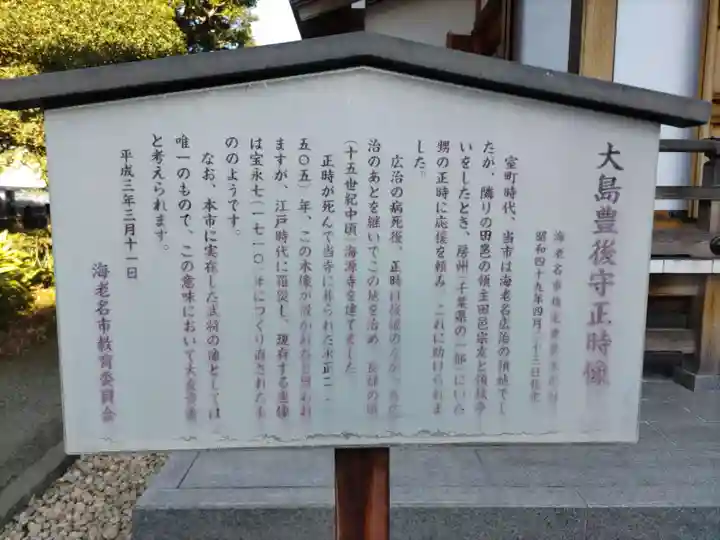 大島豊後守正時像
海老名市指定重要文化財
昭和四十九年四月二十三日指定
室町時代、当市は海老名広治の領地でし
たが、隣りの田邑の領主田邑宗友と領境争
いをしたとき、房州(千葉県の一部)にいた
甥の正時に応援を頼み、これに助けられま
した。
広治の病死後、正時は
治のあとを継いでこの地を治め、長禄の頃
(十五世紀中頃)海源寺を建てました。
正時が死んで当寺に葬られた永正二(一
五〇五)年、この木像が
ますが、江戸時代に罹災し、現存する
は宝永七(一七一〇)年につくり直されたも
ののようです。
なお、本市に実在した武将の像としては
唯一のもので、この意味において大変
と考えられます。
平成三年三月十一日
海老名市教育委員会